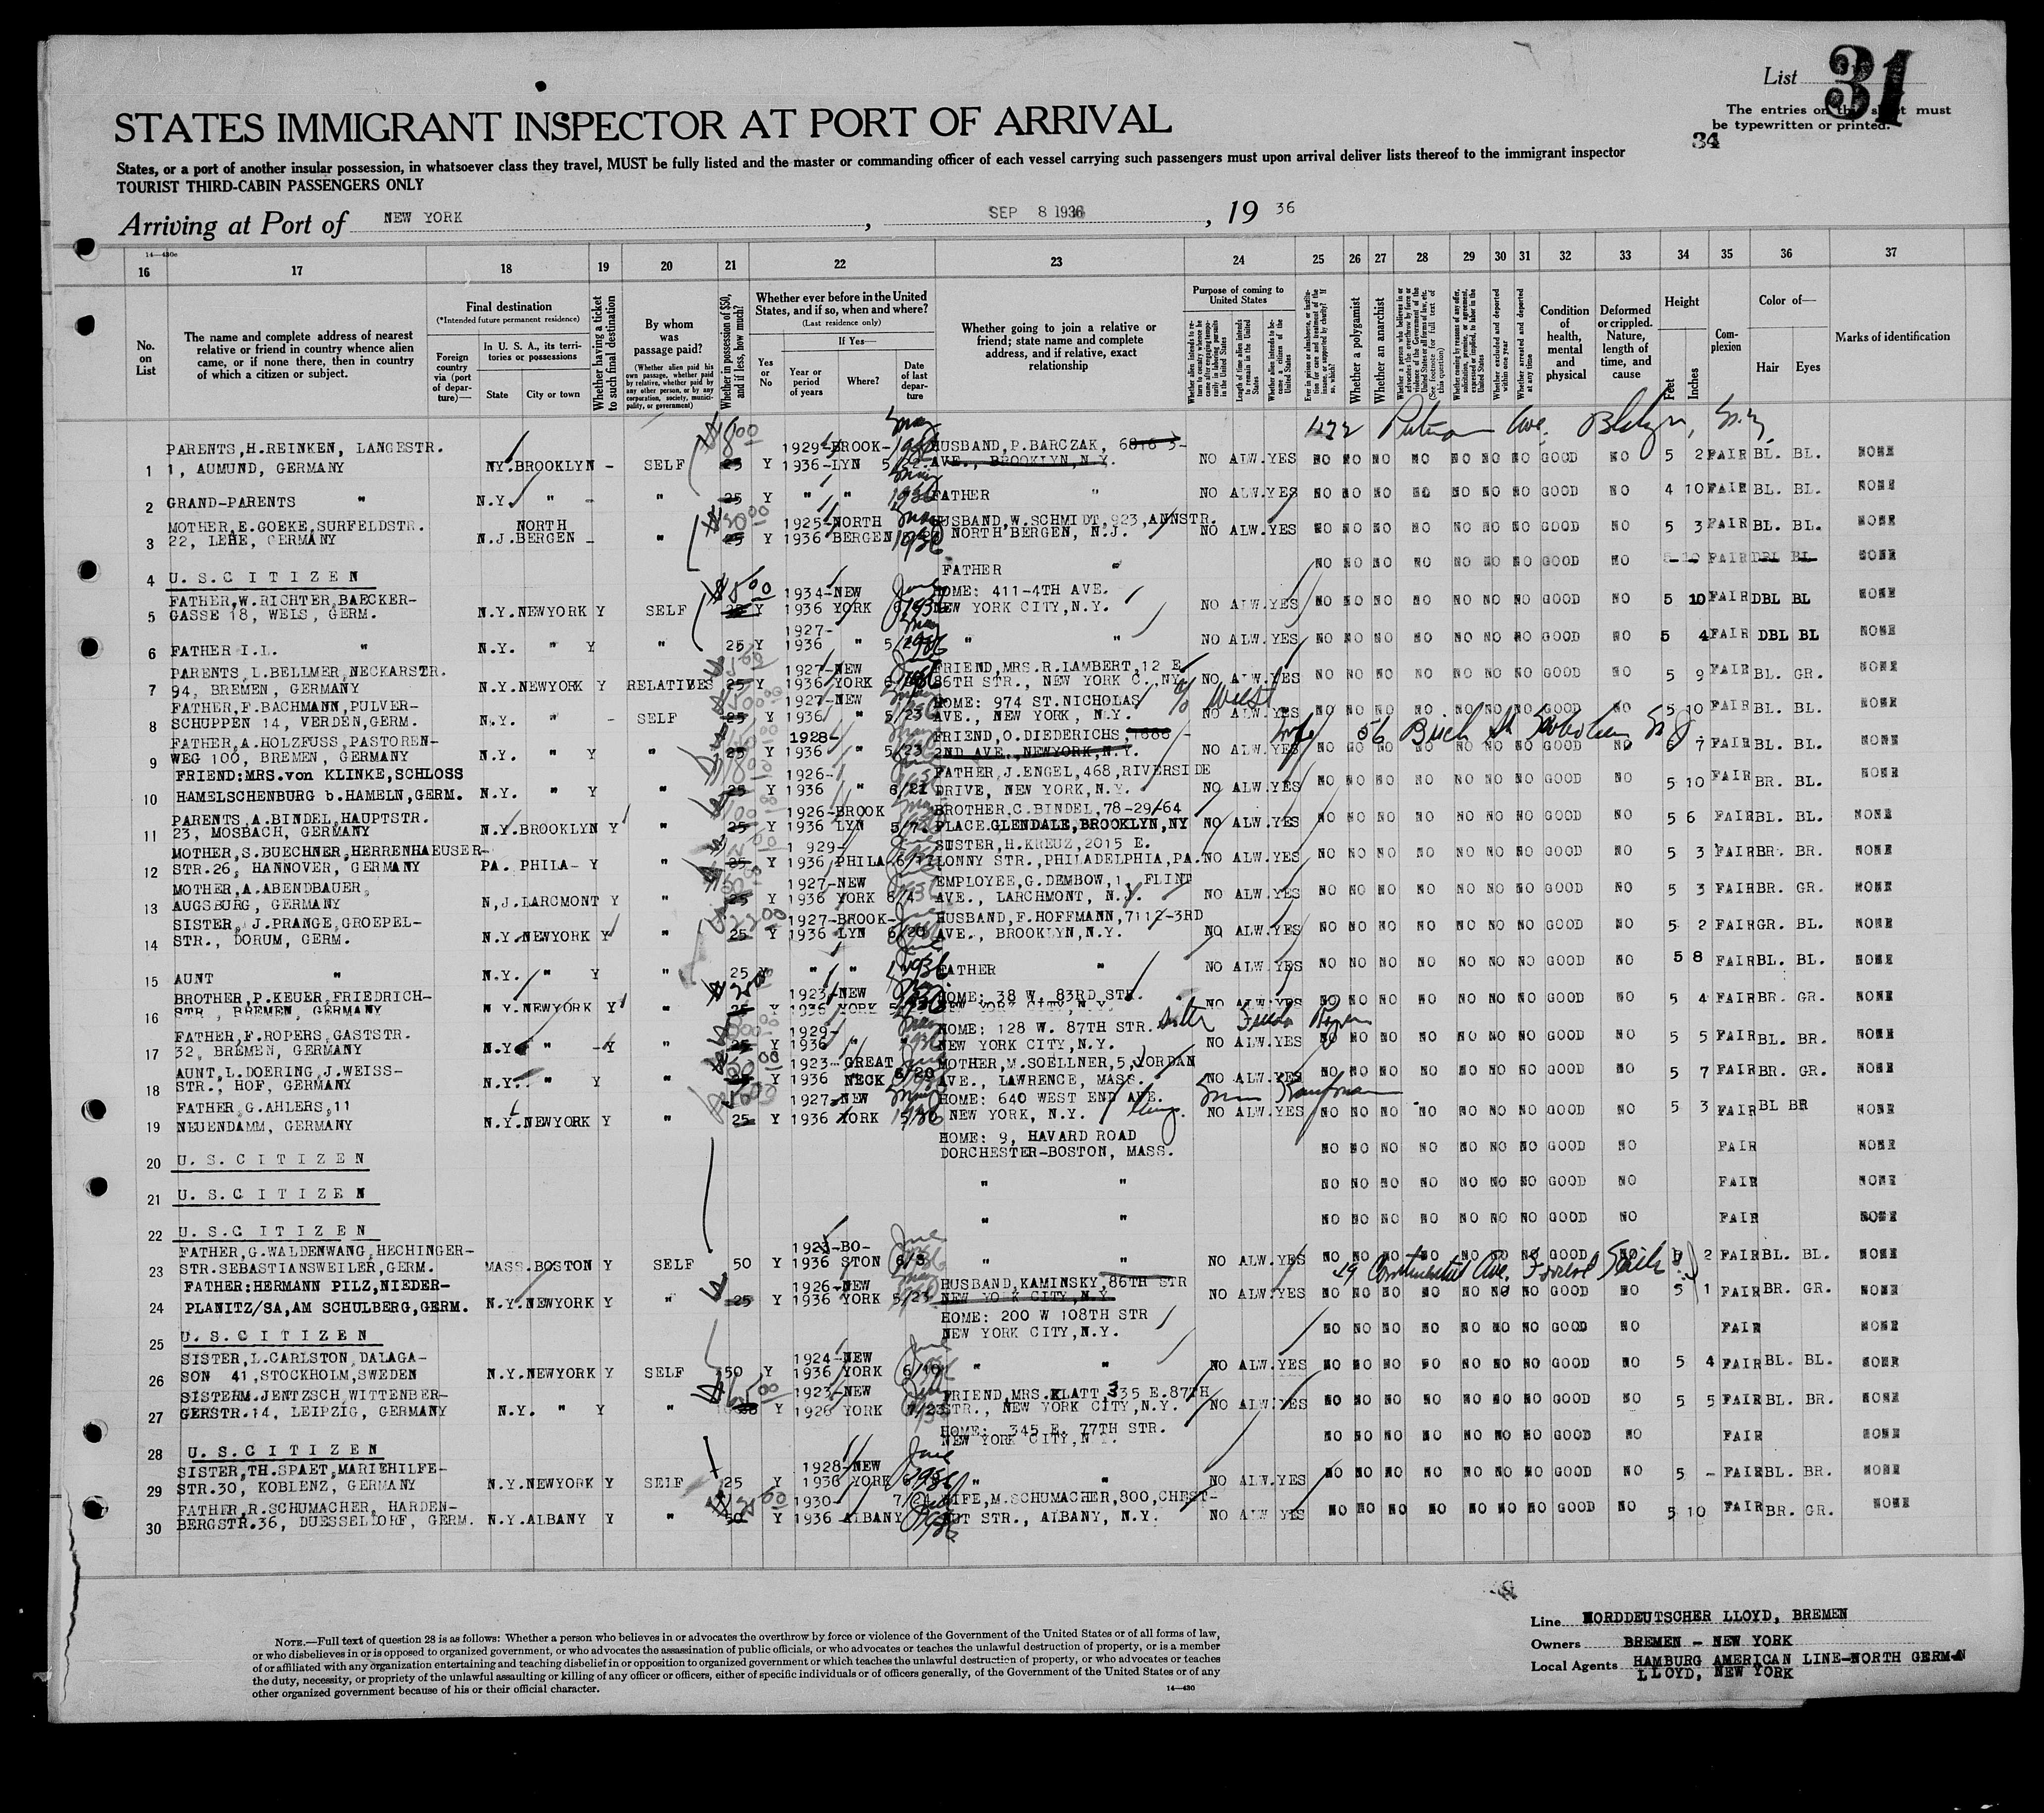 List 31
The entries on this sheet must
be typewritten or printed.
34
STATES IMMIGRANT INSPECTOR AT PORT OF ARRIVAL
States, or a port of another insular possession, in whatsoever class they travel, MUST be fully listed and the master or commanding officer of each vessel carrying such passengers must upon arrival deliver lists thereof to the immigrant inspector
TOURIST THIRD-CABIN PASSENGERS ONLY
Arriving at Port of NEW YORK, SEP 8 1936, 19 36
14—430e
16 17 18 19 20 21 22 23 24 25 26 27 28 29 30 31 32 33 34 35 36 37
No. on List
The name and complete address of nearest relative or friend in country whence alien came, or if none there, then in country of which a citizen or subject.
Final destination
(*Intended future permanent residence)
Foreign country via (port of departure)—
In U. S. A., its territories or possessions
State City or town
Whether having a ticket to such final destination
By whom was passage paid?
(Whether alien paid his own passage, whether paid by relative, whether paid by any other person, or by any corporation, society, municipality, or government)
Whether in possession of $50, and if less, how much?
Whether ever before in the United States, and if so, when and where?
(Last residence only)
Yes or No
If Yes—
Year or period of years
Where?
Date of last departure
Whether going to join a relative or friend; state name and complete address, and if relative, exact relationship
Purpose of coming to United States
Whether a polygamist
Whether an anarchist
(See footnote for full text of this question)
Whether excluded and deported within one year
Whether arrested and deported at any time
Condition of health, mental and physical
Deformed or crippled. Nature, length of time, and cause
Height
Feet Inches
Complexion
Color of—
Hair Eyes
Marks of identification
422 Putnam Ave. Bklyn, N.Y.
PARENTS,H.REINKEN, LANGESTR. 1929-BROOK- HUSBAND,P.BARCZAK, 6816 3-
1 1, AUMUND, GERMANY NY.BROOKLYN - SELF 25 Y 1936-LYN AVE., BROOKLYN,N.Y. NO ALW.YES NO NO NO NO NO NO NO GOOD NO 5 2 FAIR BL. BL. NONE
2 GRAND-PARENTS " N.Y. " - " 25 Y " " 1936 FATHER " NO ALW.YES NO NO NO NO NO NO NO GOOD NO 4 10 FAIR BL. BL. NONE
MOTHER,E.GOEKE,SURFELDSTR. NORTH 1925-NORTH HUSBAND,W.SCHMIDT,923,ANNSTR.
3 22, LEHE, GERMANY N.J.BERGEN - " 25 Y 1936 BERGEN 1936 NORTH BERGEN, N.J. NO ALW.YES NO NO NO NO NO NO NO GOOD NO 5 3 FAIR BL. BL. NONE
4 U.S.CITIZEN FATHER " NO NO NO NO NO NO NO GOOD NO FAIR DBL BL NONE
FATHER,W.RICHTER,BAECKER- $5.00 1934-NEW June HOME: 411-4TH AVE.
5 GASSE 18, WEIS, GERM. N.Y.NEWYORK Y SELF Y 1936 YORK NEW YORK CITY,N.Y. NO ALW.YES NO NO NO NO NO NO NO GOOD NO 5 10 FAIR DBL BL NONE
1927-
6 FATHER I.L. " N.Y. " Y " 25 Y 1936 " " " NO ALW.YES NO NO NO NO NO NO NO GOOD NO 5 4 FAIR DBL BL NONE
PARENTS,L.BELLMER,NECKARSTR. 1927-NEW FRIEND,MRS.R.LAMBERT,12 E.
7 94, BREMEN, GERMANY N.Y.NEWYORK Y RELATIVES 25 Y 1936 YORK 86TH STR., NEW YORK C.,NY NO ALW.YES NO NO NO NO NO NO NO GOOD NO 5 9 FAIR BL. GR. NONE
FATHER,F.BACHMANN,PULVER- 1927-NEW HOME: 974 ST.NICHOLAS c/o West
8 SCHUPPEN 14, VERDEN,GERM. N.Y. " - SELF 25 Y 1936 " 5/23 AVE., NEW YORK, N.Y. NO ALW.YES NO NO NO NO NO NO NO GOOD NO 5 10 FAIR BL. BL. NONE
FATHER,A.HOLZFUSS,PASTOREN- 1928- FRIEND,O.DIEDERICHS,1688 56 Birch St Hoboken N J
9 WEG 100, BREMEN, GERMANY N.Y. " Y " 25 Y 1936 " 5/23 2ND AVE., NEWYORK,N.Y. NO ALW.YES NO NO NO NO NO NO NO GOOD NO 7 FAIR BL. BL. NONE
FRIEND:MRS.von KLINKE,SCHLOSS 1926- FATHER,J.ENGEL,468,RIVERSIDE
10 HAMELSCHENBURG b.HAMELN,GERM. N.Y. " Y " 25 Y 1936 " 6/21 DRIVE, NEW YORK,N.Y. NO ALW.YES NO NO NO NO NO NO NO GOOD NO 5 10 FAIR BR. BL. NONE
PARENTS,A.BINDEL,HAUPTSTR. 1926-BROOK BROTHER,C.BINDEL,78-29/64
11 23, MOSBACH, GERMANY N.Y.BROOKLYN Y " 25 Y 1936 LYN PLACE.GLENDALE,BROOKLYN,NY NO ALW.YES NO NO NO NO NO NO NO GOOD NO 5 6 FAIR BL. BL. NONE
MOTHER,S.BUECHNER,HERRENHAEUSER- 1 929- SISTER,H.KREUZ,2015 E.
12 STR.26, HANNOVER, GERMANY PA. PHILA- Y " 25 Y 1936 PHILA LONNY STR.,PHILADELPHIA,PA. NO ALW.YES NO NO NO NO NO NO NO GOOD NO 5 3 FAIR BR. BR. NONE
MOTHER,A.ABENDBAUER, 1927-NEW EMPLOYEE,G.DEMBOW,1, FLINT
13 AUGSBURG, GERMANY N,J.LARCMONT Y " 25 Y 1936 YORK 6/4 AVE., LARCHMONT, N.Y. NO ALW.YES NO NO NO NO NO NO NO GOOD NO 5 3 FAIR BR. GR. NONE
SISTER, J.PRANGE,GROEPEL- 1927-BROOK- HUSBAND,F.HOFFMANN,7112-3RD
14 STR., DORUM, GERM. N.Y.NEWYORK Y " 25 Y 1936 LYN 6/20 AVE., BROOKLYN,N.Y. NO ALW.YES NO NO NO NO NO NO NO GOOD NO 5 2 FAIR GR. BL. NONE
15 AUNT " N.Y. " Y " 25 Y " " 1936 FATHER " NO ALW.YES NO NO NO NO NO NO NO GOOD NO 5 8 FAIR BL. BL. NONE
BROTHER,P.KEUER,FRIEDRICH- 1923-NEW HOME: 38 W. 83RD STR.
16 STR., BREMEN, GERMANY N Y.NEWYORK Y " 25 Y 1936 YORK NEW YORK CITY,N.Y. NO ALW.YES NO NO NO NO NO NO NO GOOD NO 5 4 FAIR BR. GR. NONE
FATHER,F.ROPERS,GASTSTR. 1929- HOME: 128 W. 87TH STR. sister Ropers
17 32, BREMEN, GERMANY N.Y. " -Y " 25 Y 1936 " NEW YORK CITY,N.Y. NO ALW.YES NO NO NO NO NO NO NO GOOD NO 5 5 FAIR BL. BR. NONE
AUNT,L.DOERING,J.WEISS- 1923- GREAT MOTHER,M.SOELLNER,5,YORDAN
18 STR., HOF, GERMANY N.Y. " Y " Y 1936 NECK 6/20 AVE., LAWRENCE, MASS. NO ALW.YES NO NO NO NO NO NO NO GOOD NO 5 7 FAIR BR. GR. NONE
FATHER,G.AHLERS,11 1927-NEW HOME: 640 WEST END AVE. Kaufman
19 NEUENDAMM, GERMANY N.Y.NEWYORK Y " 25 Y 1936 YORK NEW YORK, N.Y. NO ALW.YES NO NO NO NO NO NO NO GOOD NO 5 3 FAIR BL BR NONE
HOME: 9, HAVARD ROAD
20 U.S.CITIZEN DORCHESTER-BOSTON, MASS. NO NO NO NO NO NO NO GOOD NO FAIR NONE
21 U.S.CITIZEN " " NO NO NO NO NO NO NO GOOD NO FAIR NONE
22 U.S.CITIZEN " " NO NO NO NO NO NO NO GOOD NO FAIR NONE
FATHER,G.WALDENWANG,HECHINGER- 1923-BO- June
23 STR.SEBASTIANSWEILER,GERM. MASS.BOSTON Y SELF 50 Y 1936 STON 6/3 " " NO ALW.YES NO NO NO NO NO NO NO GOOD NO 2 FAIR BL. BL. NONE
FATHER:HERMANN PILZ,NIEDER- 1926-NEW HUSBAND,KAMINSKY,86TH STR 49 Continental Ave. Forest Hills
24 PLANITZ/SA,AM SCHULBERG,GERM. N.Y.NEWYORK Y " 25 Y 1936 YORK 5/23 NEW YORK CITY,N.Y NO ALW.YES NO NO NO NO NO NO NO GOOD NO 5 1 FAIR BR. GR. NONE
HOME: 200 W 108TH STR
25 U.S.CITIZEN NEW YORK CITY,N.Y. NO NO NO NO NO NO NO GOOD NO FAIR NONE
SISTER,L.CARLSTON,DALAGA- 1924-NEW June
26 SON 41,STOCKHOLM,SWEDEN N.Y.NEWYORK Y SELF 50 Y 1936 YORK 6/10 " " NO ALW.YES NO NO NO NO NO NO NO GOOD NO 5 4 FAIR BL. BL. NONE
SISTERM.JENTZSCH,WITTENBER- 1923-NEW FRIEND,MRS.KLATT,335 E.87TH
27 GERSTR.14, LEIPZIG, GERMANY N.Y. " Y " Y 1926 YORK STR., NEW YORK CITY,N.Y. NO ALW.YES NO NO NO NO NO NO NO GOOD NO 5 5 FAIR BL. BR. NONE
HOME: 345 E. 77TH STR.
28 U.S.CITIZEN NEW YORK CITY,N.Y. NO NO NO NO NO NO NO GOOD NO FAIR NONE
SISTER,TH.SPAET,MARIEHILFE- 1928-NEW June
29 STR.30, KOBLENZ, GERMANY N.Y.NEWYORK Y SELF 25 Y 1936 YORK 1936 " " NO ALW.YES NO NO NO NO NO NO NO GOOD NO 5 - FAIR BL. BR. NONE
FATHER,R.SCHUMACHER, HARDEN- 1930- WIFE,M.SCHUMACHER,800,CHEST-
30 BERGSTR.36, DUESSELDORF, GERM. N.Y.ALBANY Y " 50 Y 1936 ALBANY NUT STR., ALBANY, N.Y. NO ALW YES NO NO NO NO NO NO NO GOOD NO 5 10 FAIR BR. GR. NONE
NOTE.—Full text of question 28 is as follows: Whether a person who believes in or advocates the overthrow by force or violence of the Government of the United States or of all forms of law,
or who disbelieves in or is opposed to organized government, or who advocates the assassination of public officials, or who advocates or teaches the unlawful destruction of property, or is a member
of or affiliated with any organization entertaining and teaching disbelief in or opposition to organized government or which teaches the unlawful destruction of property, or who advocates or teaches
the duty, necessity, or propriety of the unlawful assaulting or killing of any officer or officers, either of specific individuals or of officers generally, of the Government of the United States or of any
other organized government because of his or their official character.
14—430
Line NORDDEUTSCHER LLOYD, BREMEN
Owners BREMEN - NEW YORK
Local Agents HAMBURG AMERICAN LINE-NORTH GERMAN
LLOYD, NEW YORK